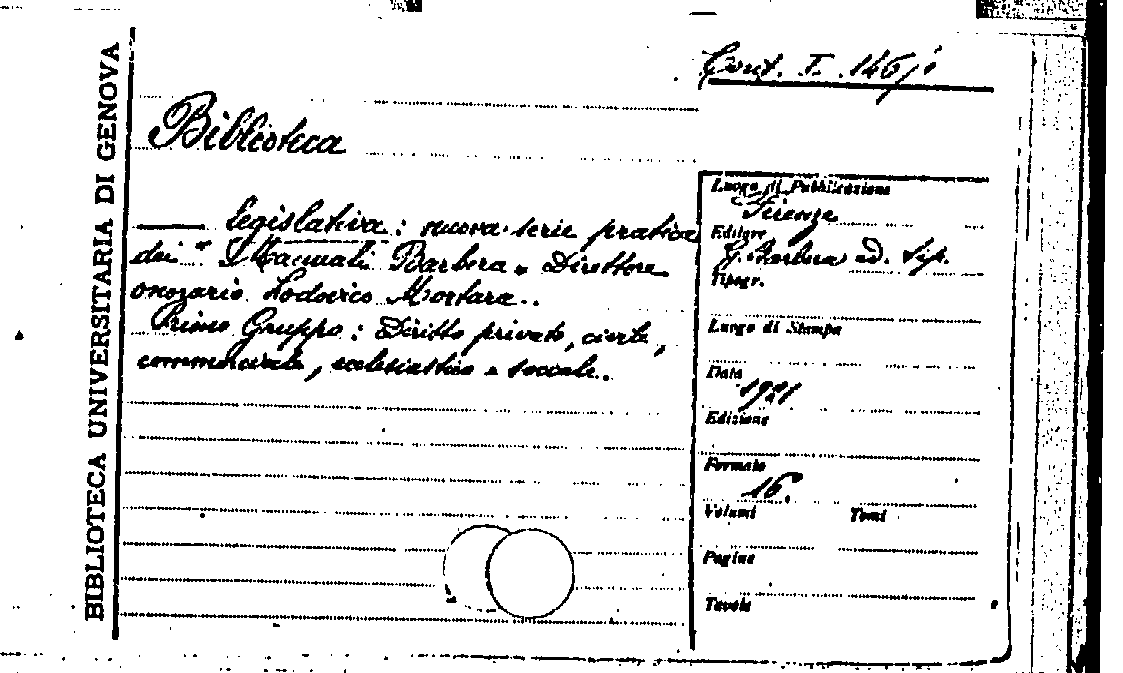 BIBLIOTECA UNIVERSITARIA DI GENOVA
Conf. T. 146/1
Biblioteca
——— legislativa: nuova serie pratica
dei "Manuali Barbera" Direttore
onorario Lodovico Mortara..
Primo Gruppo: Diritto privato, civile,
commerciale, ecclesiastico e sociale.
Luogo di Pubblicazione
Firenze
Editore
G. Barbera ed. tip.
Tipogr.
Luogo di Stampa
Data
1921
Edizione
Formato
16.
Volumi Tomi
Pagine
Tavole